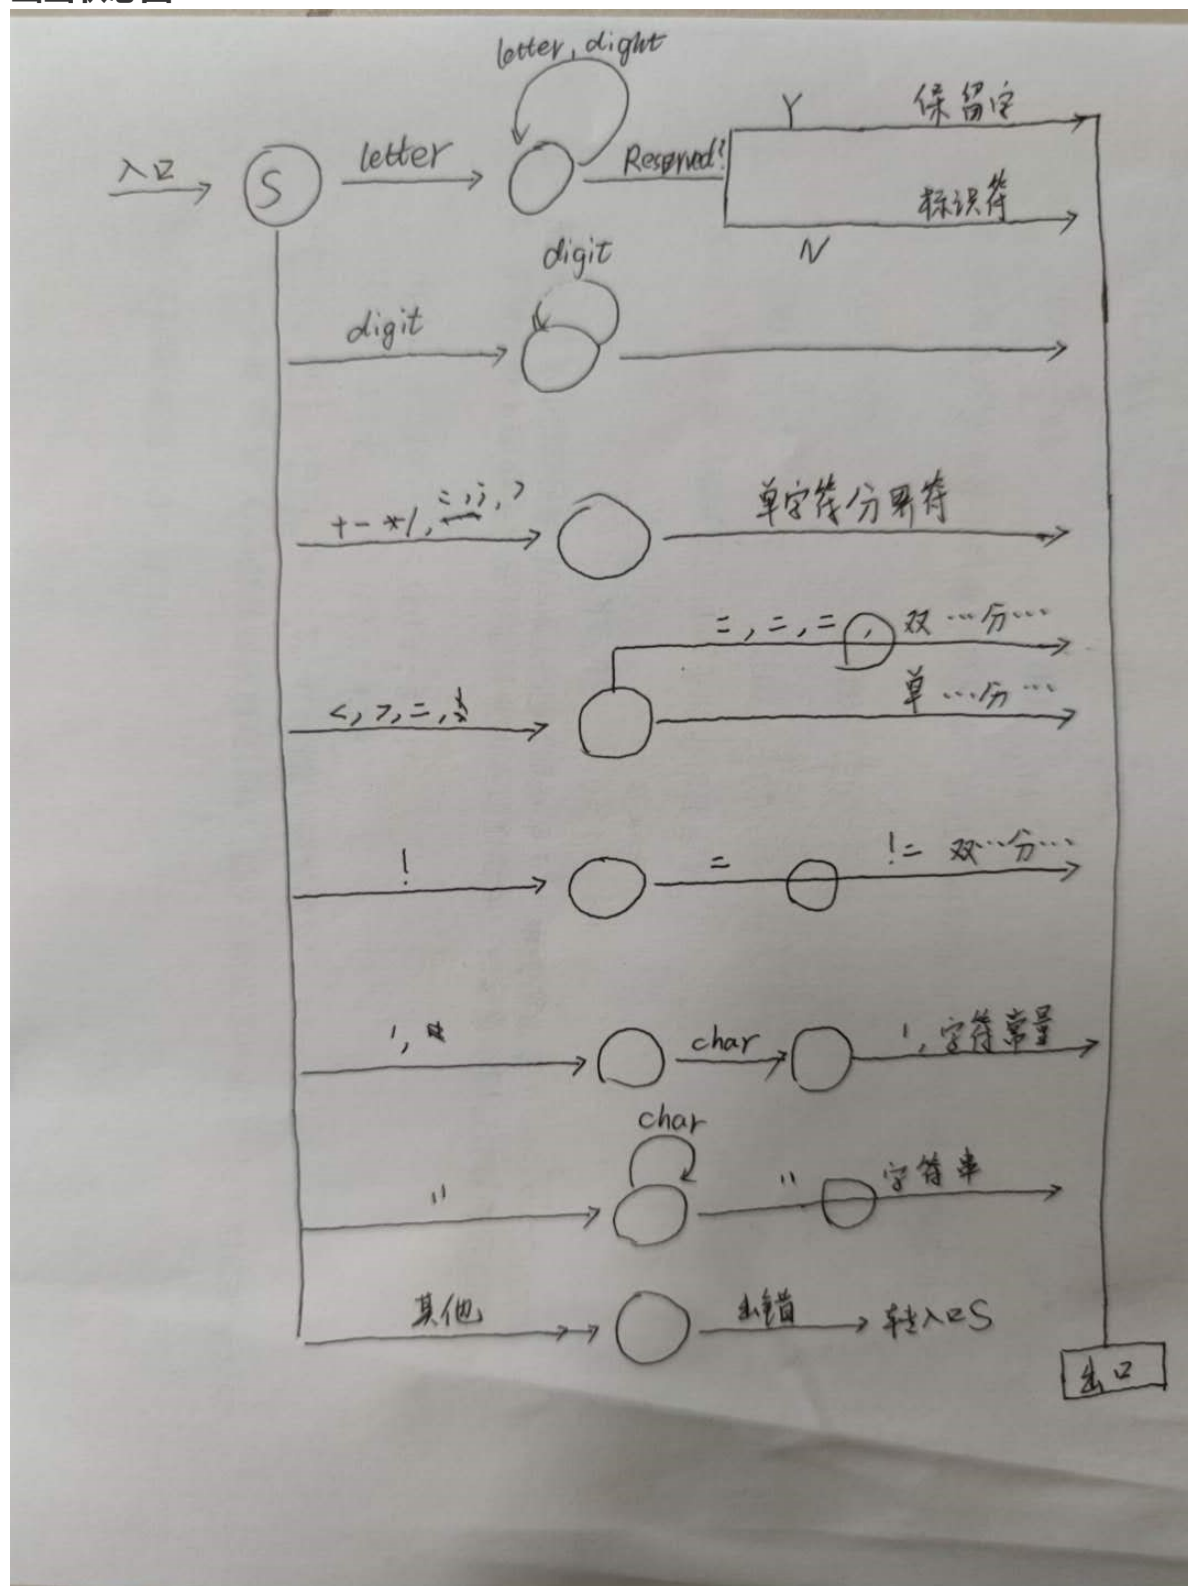 letter, dight
入口 S letter Reserved? Y 保留字
标识符
N
digit
digit
+ - * /, 单字符分界符
=, =, =, 双…分…
<, >, =, 单…分…
! = != 双…分…
', char ', 字符常量
char
" " 字符串
其他 出错 转入口S
出口